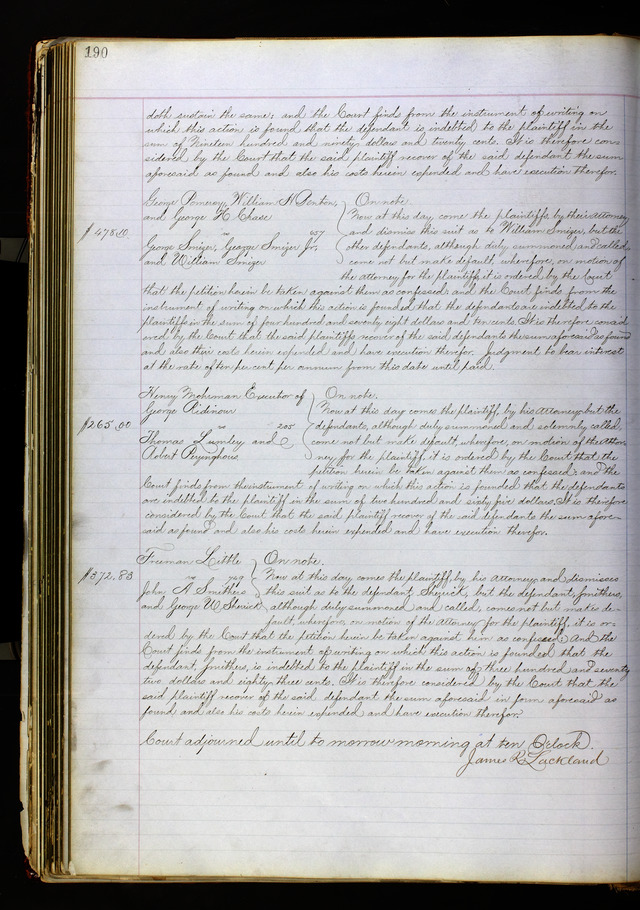 190
doth sustain the same; and the Court finds from the instrument of writing on
which this action is found that the defendant is indebted to the plaintiff in the
sum of Nineteen hundred and ninety dollars and twenty cents. It is therefore con-
sidered by the Court that the said plaintiff recover of the said defendant the sum
aforesaid as found and also his costs herein expended and have execution therefor.
George Pomeroy, William N Penton, On note.
and George H Chase Now at this day, come the plaintiffs, by their Attorney
$478.10. vs 657 and dismiss this suit as to William Smizer, but the
George Smizer, George Smizer Jr, other defendants, although duly summoned and called
and William Smizer come not but make default, wherefore, on motion of
the attorney for the plaintiffs, it is ordered by the Court
that the petition herein be taken against them as confessed; and the Court finds from the
instrument of writing on which the action is founded that the defendants are indebted to the
plaintiffs in the sum of four hundred and seventy eight dollars and ten cents. It is therefore consid
ered by the Court that the said plaintiffs recover of the said defendants the sum aforesaid as found
and also their costs herein expended and have execution therefor. Judgment to bear interest
at the rate of ten per cent per annum from this date until paid.
Henry Mohrman Executor of On note.
George Ridinour Now at this day comes the plaintiff, by his Attorney, but the
$265.00 vs 205 defendants, although duly summoned and solemnly called,
Thomas Lumley and come not but make default, wherefore, on motion of the Attor
Robert ney for the plaintiff it is ordered by the Court that the
petition herein be taken against them as confessed; and the
Court finds from the instrument of writing on which this action is founded that the defendants
are indebted to the plaintiff in the sum of two hundred and sixty five dollars. It is therefore
considered by the Court that the said plaintiff recover of the said defendants the sum afore-
said as found and also his costs herein expended and have execution therefor.
Freeman Little On note.
$372.83 vs 759 Now at this day comes the plaintiff, by his Attorney and dismisses
John A Smithers this suit as to the defendant, Sherick, but the defendant, Smithers,
and George W. Sherick although duly summoned and called, comes not but makes de-
fault, wherefore, on motion of the Attorney for the plaintiff, it is or-
dered by the Court that the petition herein be taken against him as confessed; And the
Court finds from the instrument of writing on which this action is founded that the
defendant, Smithers, is indebted to the plaintiff in the sum of three hundred and seventy
two dollars and eighty three cents. It is therefore considered by the Court that the
said plaintiff recover of the said defendant the sum aforesaid in form aforesaid as
found and also his costs herein expended and have execution therefor.
Court adjourned until to morrow morning at ten Oclock.
James R. Lackland